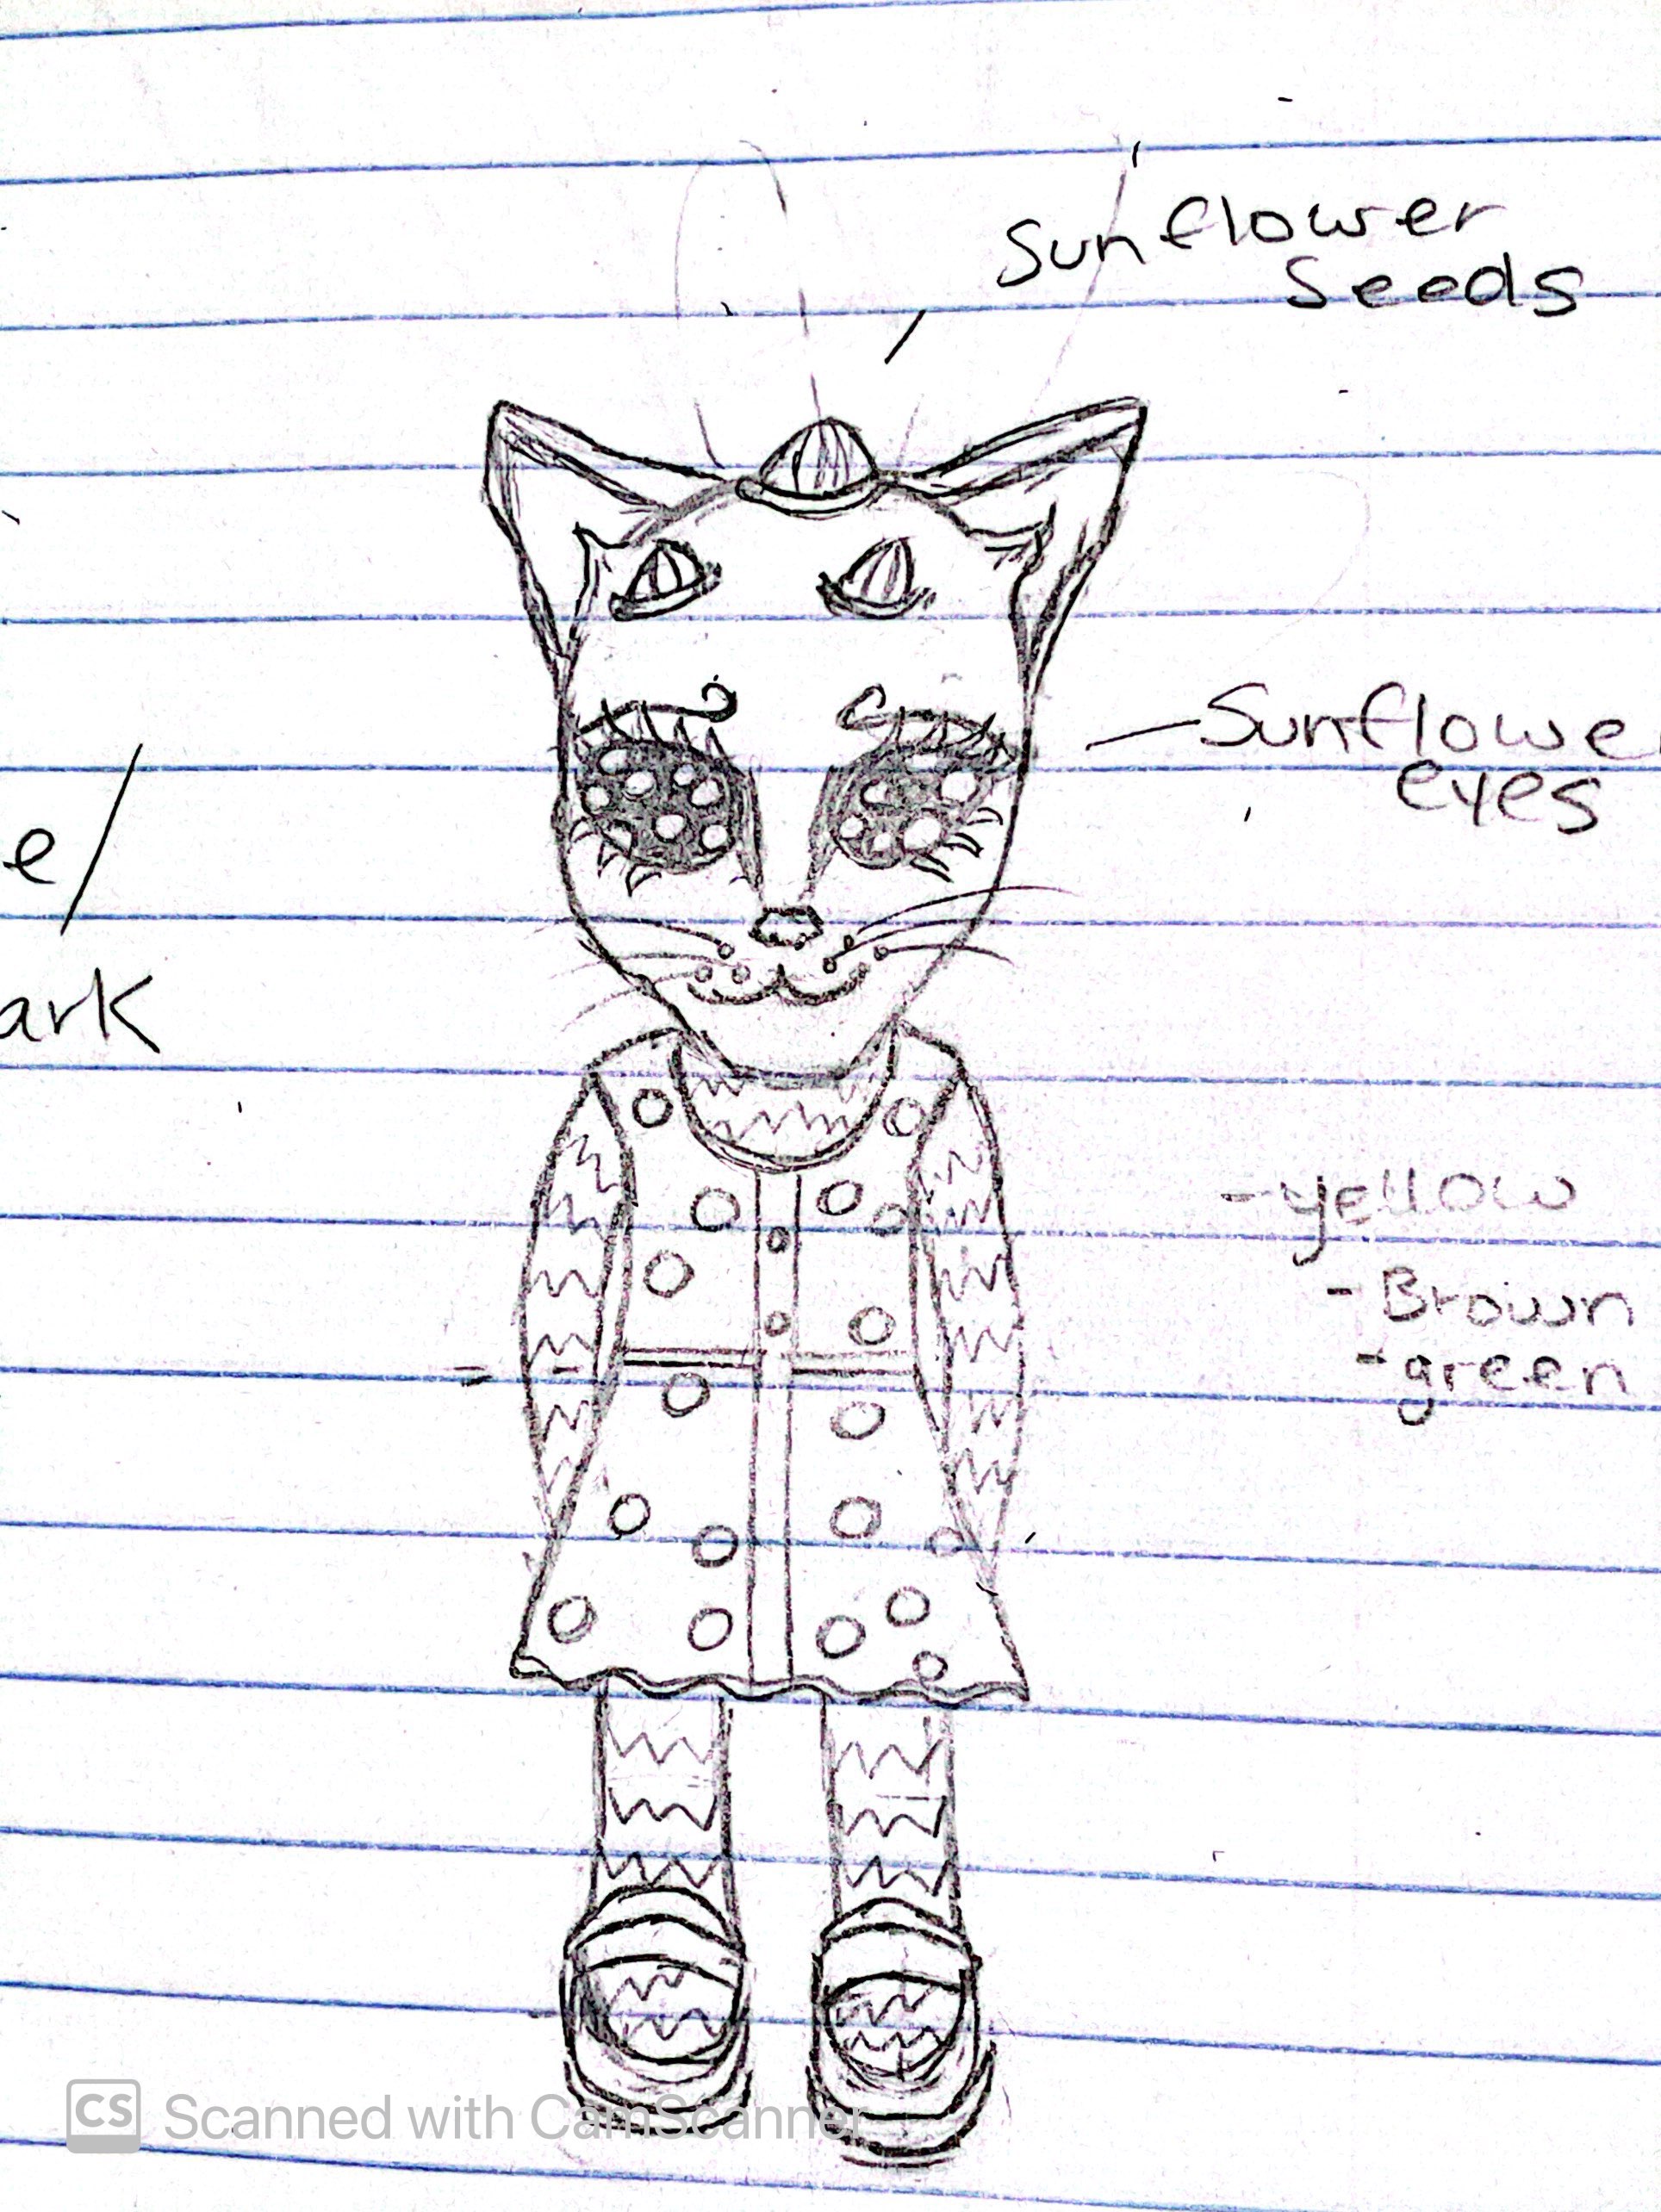 Sunflower
Seeds
Sunflowe
eyes
e/
ark
- yellow
- Brown
- green
CS Scanned with CamScanner